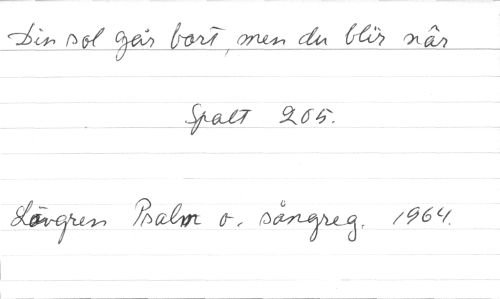 Din sol går bort, men du blir när
Spalt 205.
Lövgren Psalm o. sångreg. 1964.